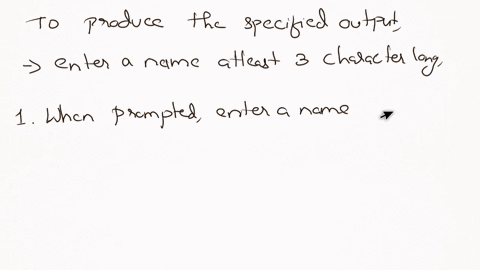 To produce the specified output,
→ enter a name atleast 3 character long,
1. When prompted, enter a name